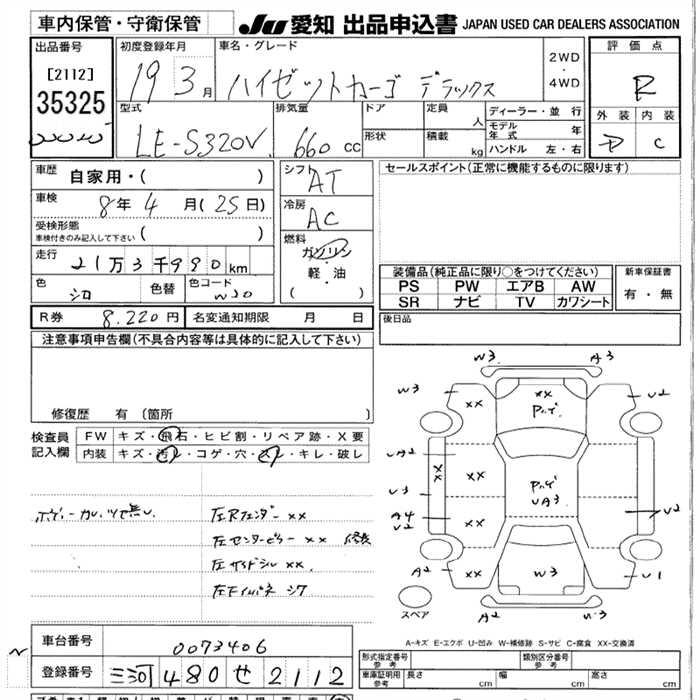 車内保管・守衛保管
JU 愛知 出品申込書 JAPAN USED CAR DEALERS ASSOCIATION
出品番号
[2112]
35325
初度登録年月
19 3月
車名・グレード
ハイゼットカーゴ デラックス
2WD
・
4WD
評価点
R
外装 内装
D C
型式
LE-S320V
排気量
660 cc
ドア
形状
定員
人
積載
kg
ディーラー・並行
モデル年式 年
ハンドル 左・右
車歴
自家用・( )
車検
8年 4月(25日)
受検形態
車検付きのみ記入して下さい ( )
走行
21万3千990km
色
シロ
色替
色コード
W20
シフト
AT
冷房
AC
燃料
ガソリン
・
軽・油
( )
セールスポイント(正常に機能するものに限ります)
装備品(純正品に限り○をつけてください)
PS PW エアB AW
SR ナビ TV カワシート
新車保証書
有・無
R券 8.220円
名変通知期限 月 日
後日品
注意事項申告欄(不具合内容等は具体的に記入して下さい)
修復歴 有 〔箇所 〕
検査員
記入欄
FW キズ・飛石・ヒビ割・リペア跡・X要
内装 キズ・汚れ・コゲ・穴・スレ・キレ・破レ
左Rフェンダー xx
左センターピラー xx
左サイドシル xx
W3 A3
W3 xx xx U2
Pハゲ
UA2 xx xx
Pハゲ
UA3
U3
A4
U2 xx U2
A2 xx W3 U1
A2 U3
スペア
A-キズ E-エクボ U-凹み W-補修跡 S-サビ C-腐食 XX-交換済
車台番号 0073406
登録番号 三河 480 せ 2112
形式指定番号
参考
類別区分番号
参考
車庫証明用
参考
長さ 幅 高さ
cm cm cm